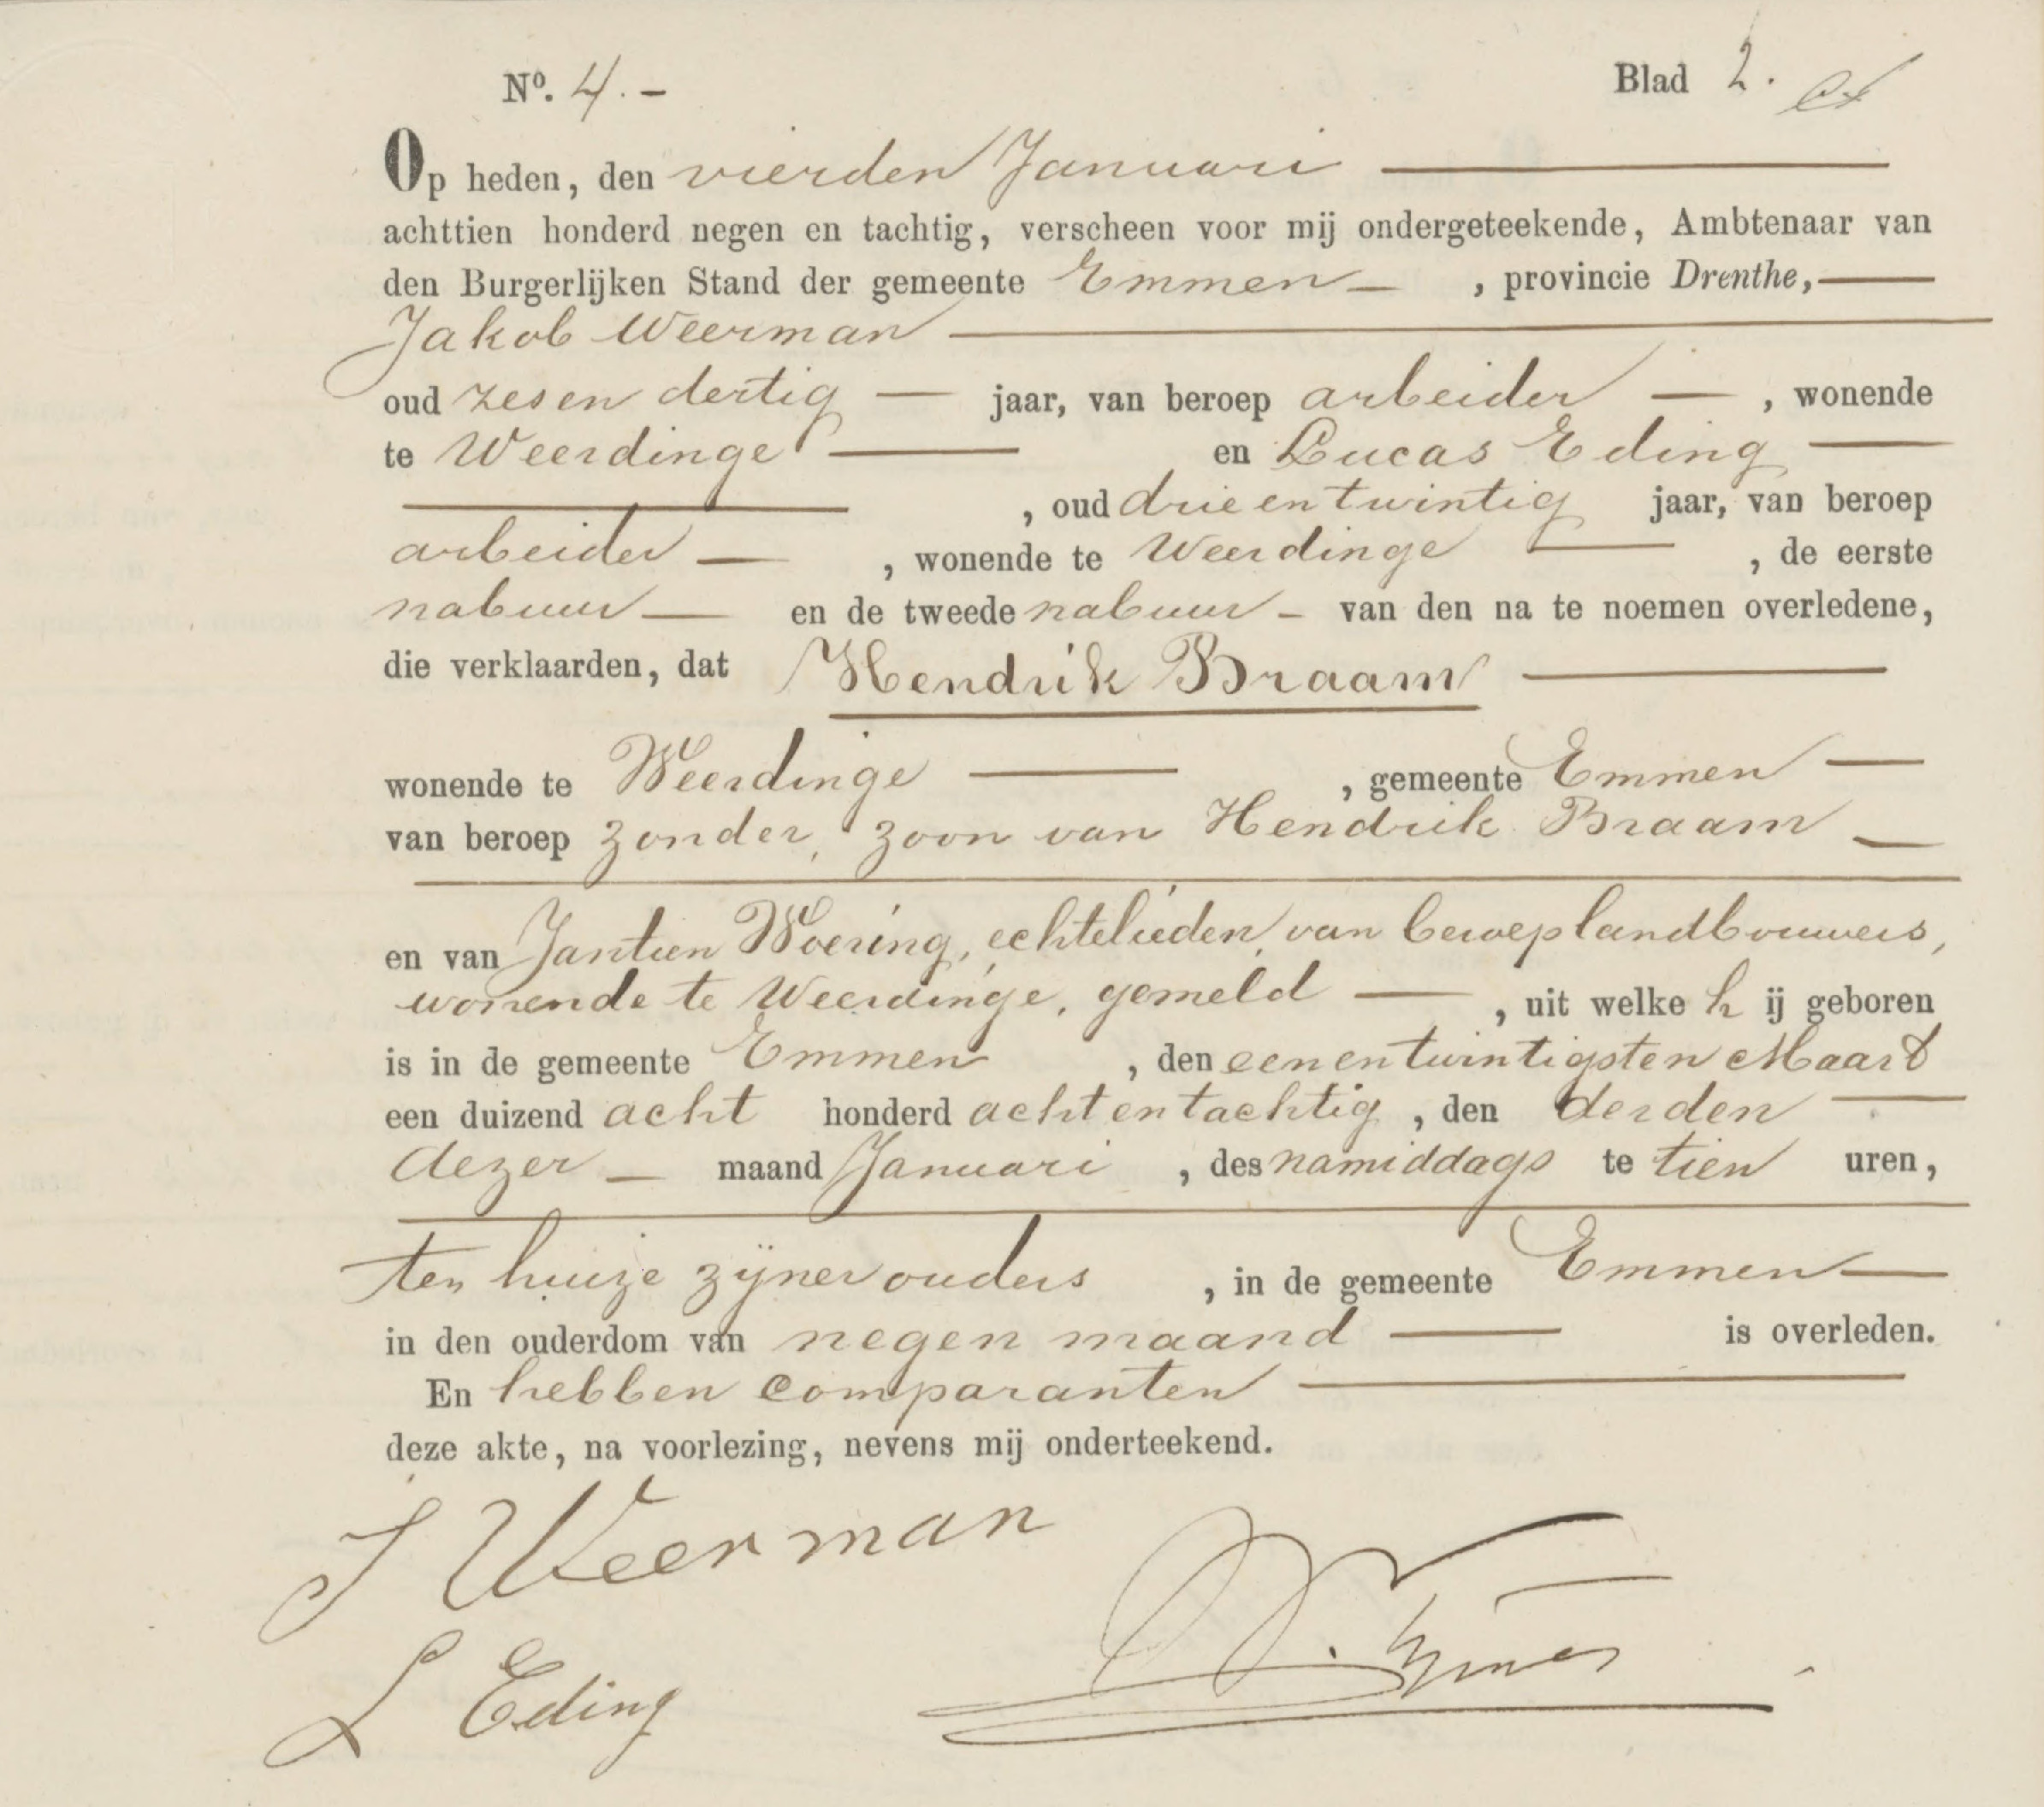 Nº. 4. -
Blad 2.
Op heden, den vierden Januari
achttien honderd negen en tachtig, verscheen voor mij ondergeteekende, Ambtenaar van
den Burgerlijken Stand der gemeente Emmen, provincie Drenthe,
Jakob Weerman
oud zes en dertig jaar, van beroep arbeider, wonende
te Weerdinge en Lucas Eding
, oud drie en twintig jaar, van beroep
arbeider, wonende te Weerdinge, de eerste
nabuur en de tweede nabuur van den na te noemen overledene,
die verklaarden, dat Hendrik Braam
wonende te Weerdinge, gemeente Emmen
van beroep zonder, zoon van Hendrik Braam
en van Jantien Woering, echtelieden, van beroep landbouwers,
wonende te Weerdinge, gemeld, uit welke h ij geboren
is in de gemeente Emmen, den een en twintigsten Maart
een duizend acht honderd acht en tachtig, den derden
dezer maand Januari, des namiddags te tien uren,
ten huize zijner ouders, in de gemeente Emmen
in den ouderdom van negen maand is overleden.
En hebben comparanten
deze akte, na voorlezing, nevens mij onderteekend.
J Weerman
L Eding